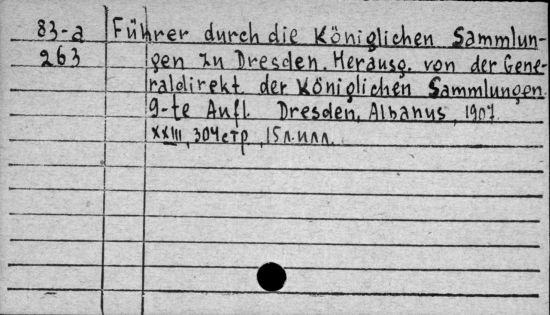 83-a Führer durch die Königlichen Sammlun-
263 gen zu Dresden. Herausg. von der Gene-
raldirekt der Königlichen Sammlungen.
9-te Aufl. Dresden, Albanus, 1907.
XXIII, 304 стр, 15 л. илл.